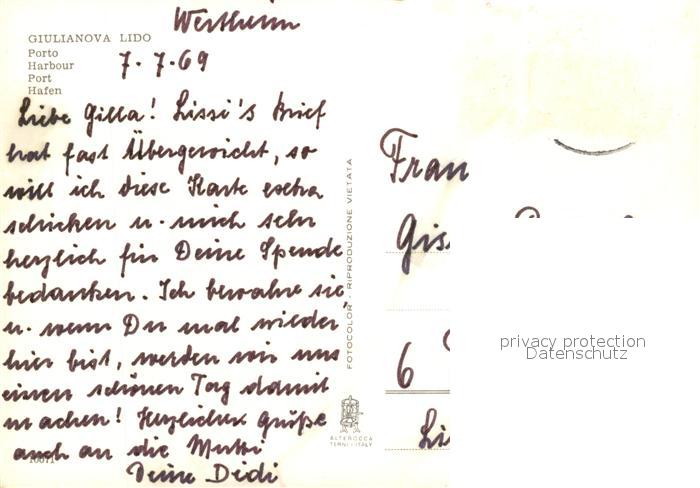 Wertheim
GIULIANOVA LIDO
Porto
Harbour
Port
Hafen
7.7.69
Liebe Gilla! Lissi's Brief
hat fast Übergewicht, so
will ich diese Karte extra
schicken u. mich sehr
herzlich für Deine Spende
bedanken. Ich bewahre sie,
u. wenn Du mal wieder
hier bist, werden wir uns
einen schönen Tag damit
machen! Herzliche Grüße
auch an die Mutti
Deine Didi
FOTOCOLOR - RIPRODUZIONE VIETATA
ALTEROCCA
TERNI-ITALY
Frau
Gis
6
Li
privacy protection
Datenschutz